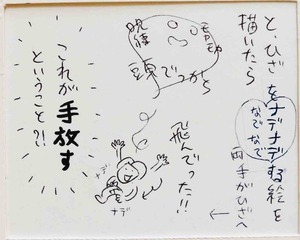 と、ひざをナデナデする絵を
なでなで
描いたら
両手がひざへ
モヤモヤ
呪縛
頭でっかち
飛んでった!!
ナデ
ナデ
これが手放す
ということ?!